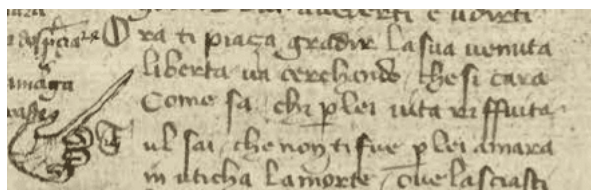 e udirti
Ora ti piaça gradir la sua uenuta
liberta ua cerchando che si cara
Come sa chi ꝑ lei uita riffiuta
Tul sai che non ti fue ꝑ lei amara
in uticha la morte oue lasciasti